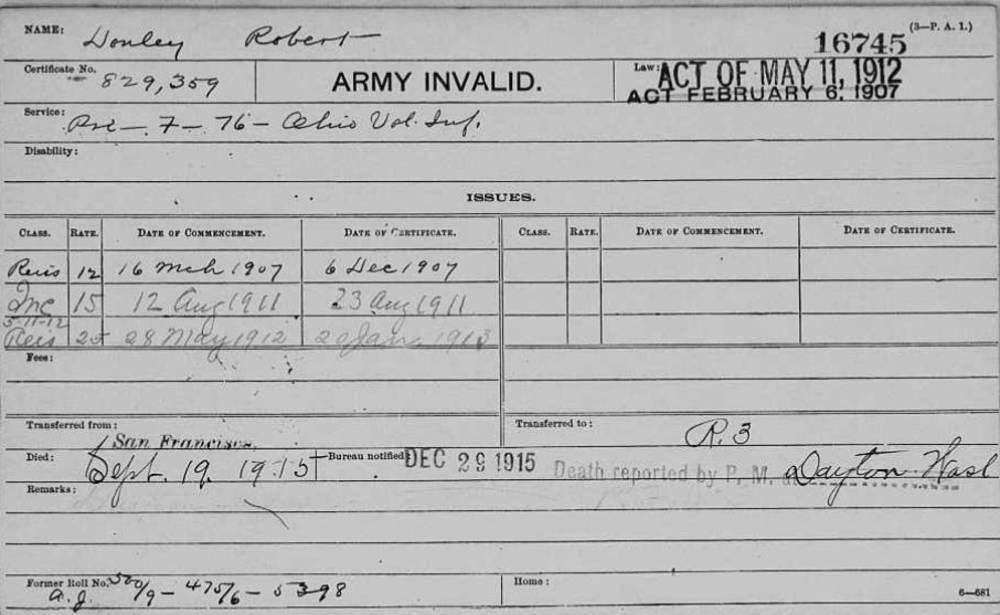 (3—P. A. 1.)
NAME: Donley Robert
16745
Certificate No. 829,359
ARMY INVALID.
Law: ACT OF MAY 11, 1912
ACT FEBRUARY 6, 1907
Service: Pvt — 7 — 76 — Ohio Vol. Inf.
Disability:
ISSUES.
CLASS. RATE. DATE OF COMMENCEMENT. DATE OF CERTIFICATE. CLASS. RATE. DATE OF COMMENCEMENT. DATE OF CERTIFICATE.
Reis 12 16 Mch 1907 6 Dec 1907
Inc 15 12 Aug 1911 23 Aug 1911
5-11-12
Reis 25 28 May 1912 Jan. 1913
Fees:
Transferred from: San Francisco.
Transferred to: R. 3
Died: Sept. 19. 1915
Bureau notified DEC 29 1915
Death reported by P. M. at Dayton Wash
Remarks:
Former Roll No. 500/9 — 475/6 — 5398
Home:
6—681